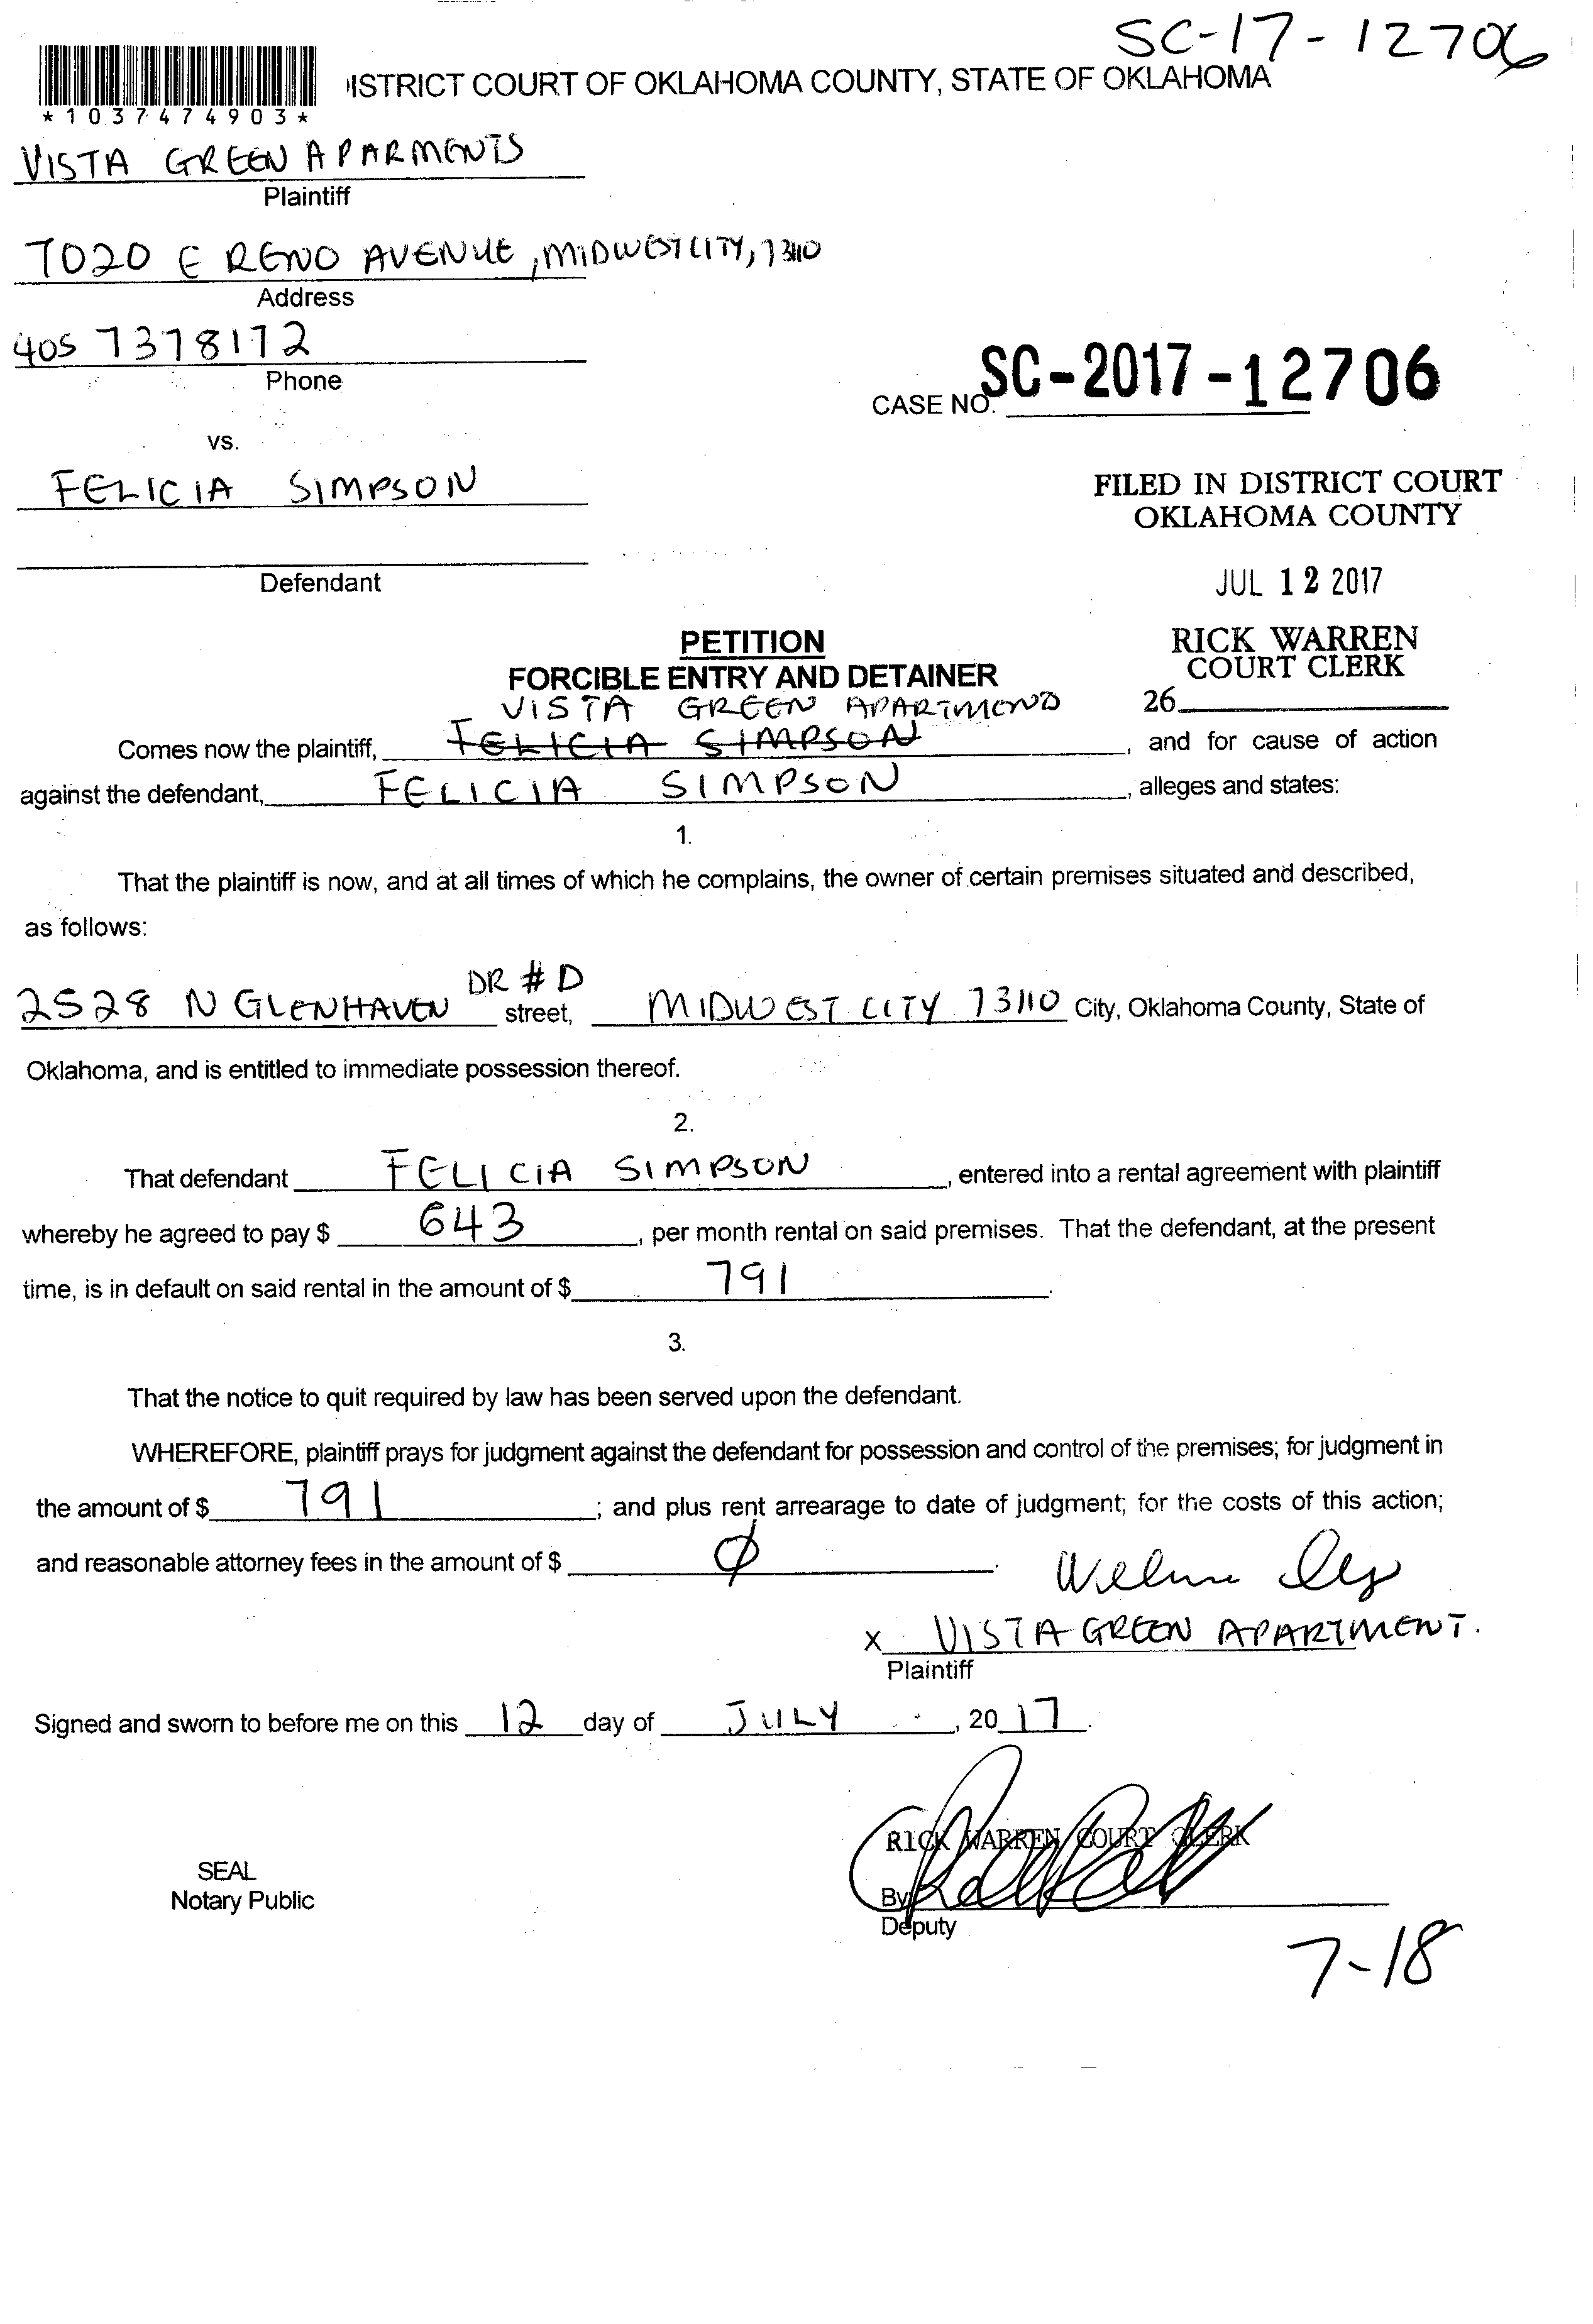 SC-17-12706
ISTRICT COURT OF OKLAHOMA COUNTY, STATE OF OKLAHOMA
*1037474903*
VISTA GREEN APARMENTS
Plaintiff
7020 E RENO AVENUE, MIDWEST CITY, 73110
Address
405 7378172
Phone
CASE NO. SC-2017-12706
vs.
FELICIA SIMPSON
Defendant
FILED IN DISTRICT COURT
OKLAHOMA COUNTY
JUL 12 2017
RICK WARREN
COURT CLERK
26
PETITION
FORCIBLE ENTRY AND DETAINER
VISTA GREEN
Comes now the plaintiff, FELICIA SIMPSON, and for cause of action
against the defendant, FELICIA SIMPSON, alleges and states:
1.
That the plaintiff is now, and at all times of which he complains, the owner of certain premises situated and described,
as follows:
DR # D
2528 N GLENHAVEN street, MIDWEST CITY 73110 City, Oklahoma County, State of
Oklahoma, and is entitled to immediate possession thereof.
2.
That defendant FELICIA SIMPSON, entered into a rental agreement with plaintiff
whereby he agreed to pay $ 643, per month rental on said premises. That the defendant, at the present
time, is in default on said rental in the amount of $ 791.
3.
That the notice to quit required by law has been served upon the defendant.
WHEREFORE, plaintiff prays for judgment against the defendant for possession and control of the premises; for judgment in
the amount of $ 791; and plus rent arrearage to date of judgment; for the costs of this action;
and reasonable attorney fees in the amount of $ Ø.
x VISTA GREEN APARTMENT.
Plaintiff
Signed and sworn to before me on this 12 day of JULY, 2017.
RICK WARREN COURT CLERK
SEAL
Notary Public
By
Deputy
7-18